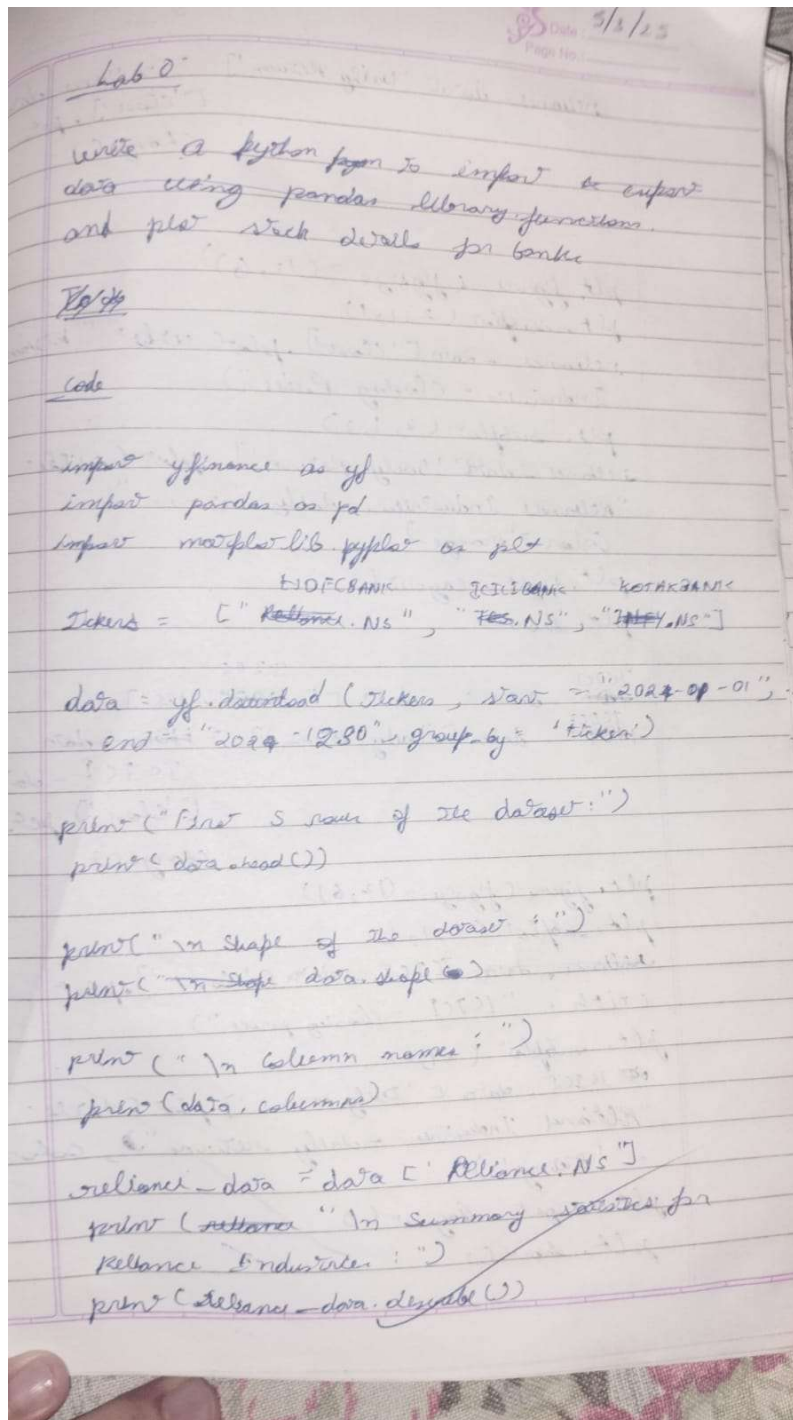 Date: 5/3/25
Page No.:
Lab 0
write a python pgm to import & export
data using pandas library functions.
and plot stock details for banks
Code
import yfinance as yf
import pandas as pd
import matplotlib.pyplot as plt
HDFCBANK ICICIBANK KOTAKBANK
Tickers = [" Reliance.NS", "TCS.NS", "INFY.NS"]
data = yf.download (Tickers, start = "2024-01-01",
end = "2024-1230", group_by = 'ticker')
print ("First 5 rows of the dataset:")
print (data.head())
print (" \n Shape of the dataset : ")
print (" \n Shape data.shape )
print (" \n Column names : ")
print (data.columns)
reliance_data = data [' Reliance.NS "]
print ( reliance "\n Summary statistics for
Reliance Industries : ")
print (reliance_data.describe())